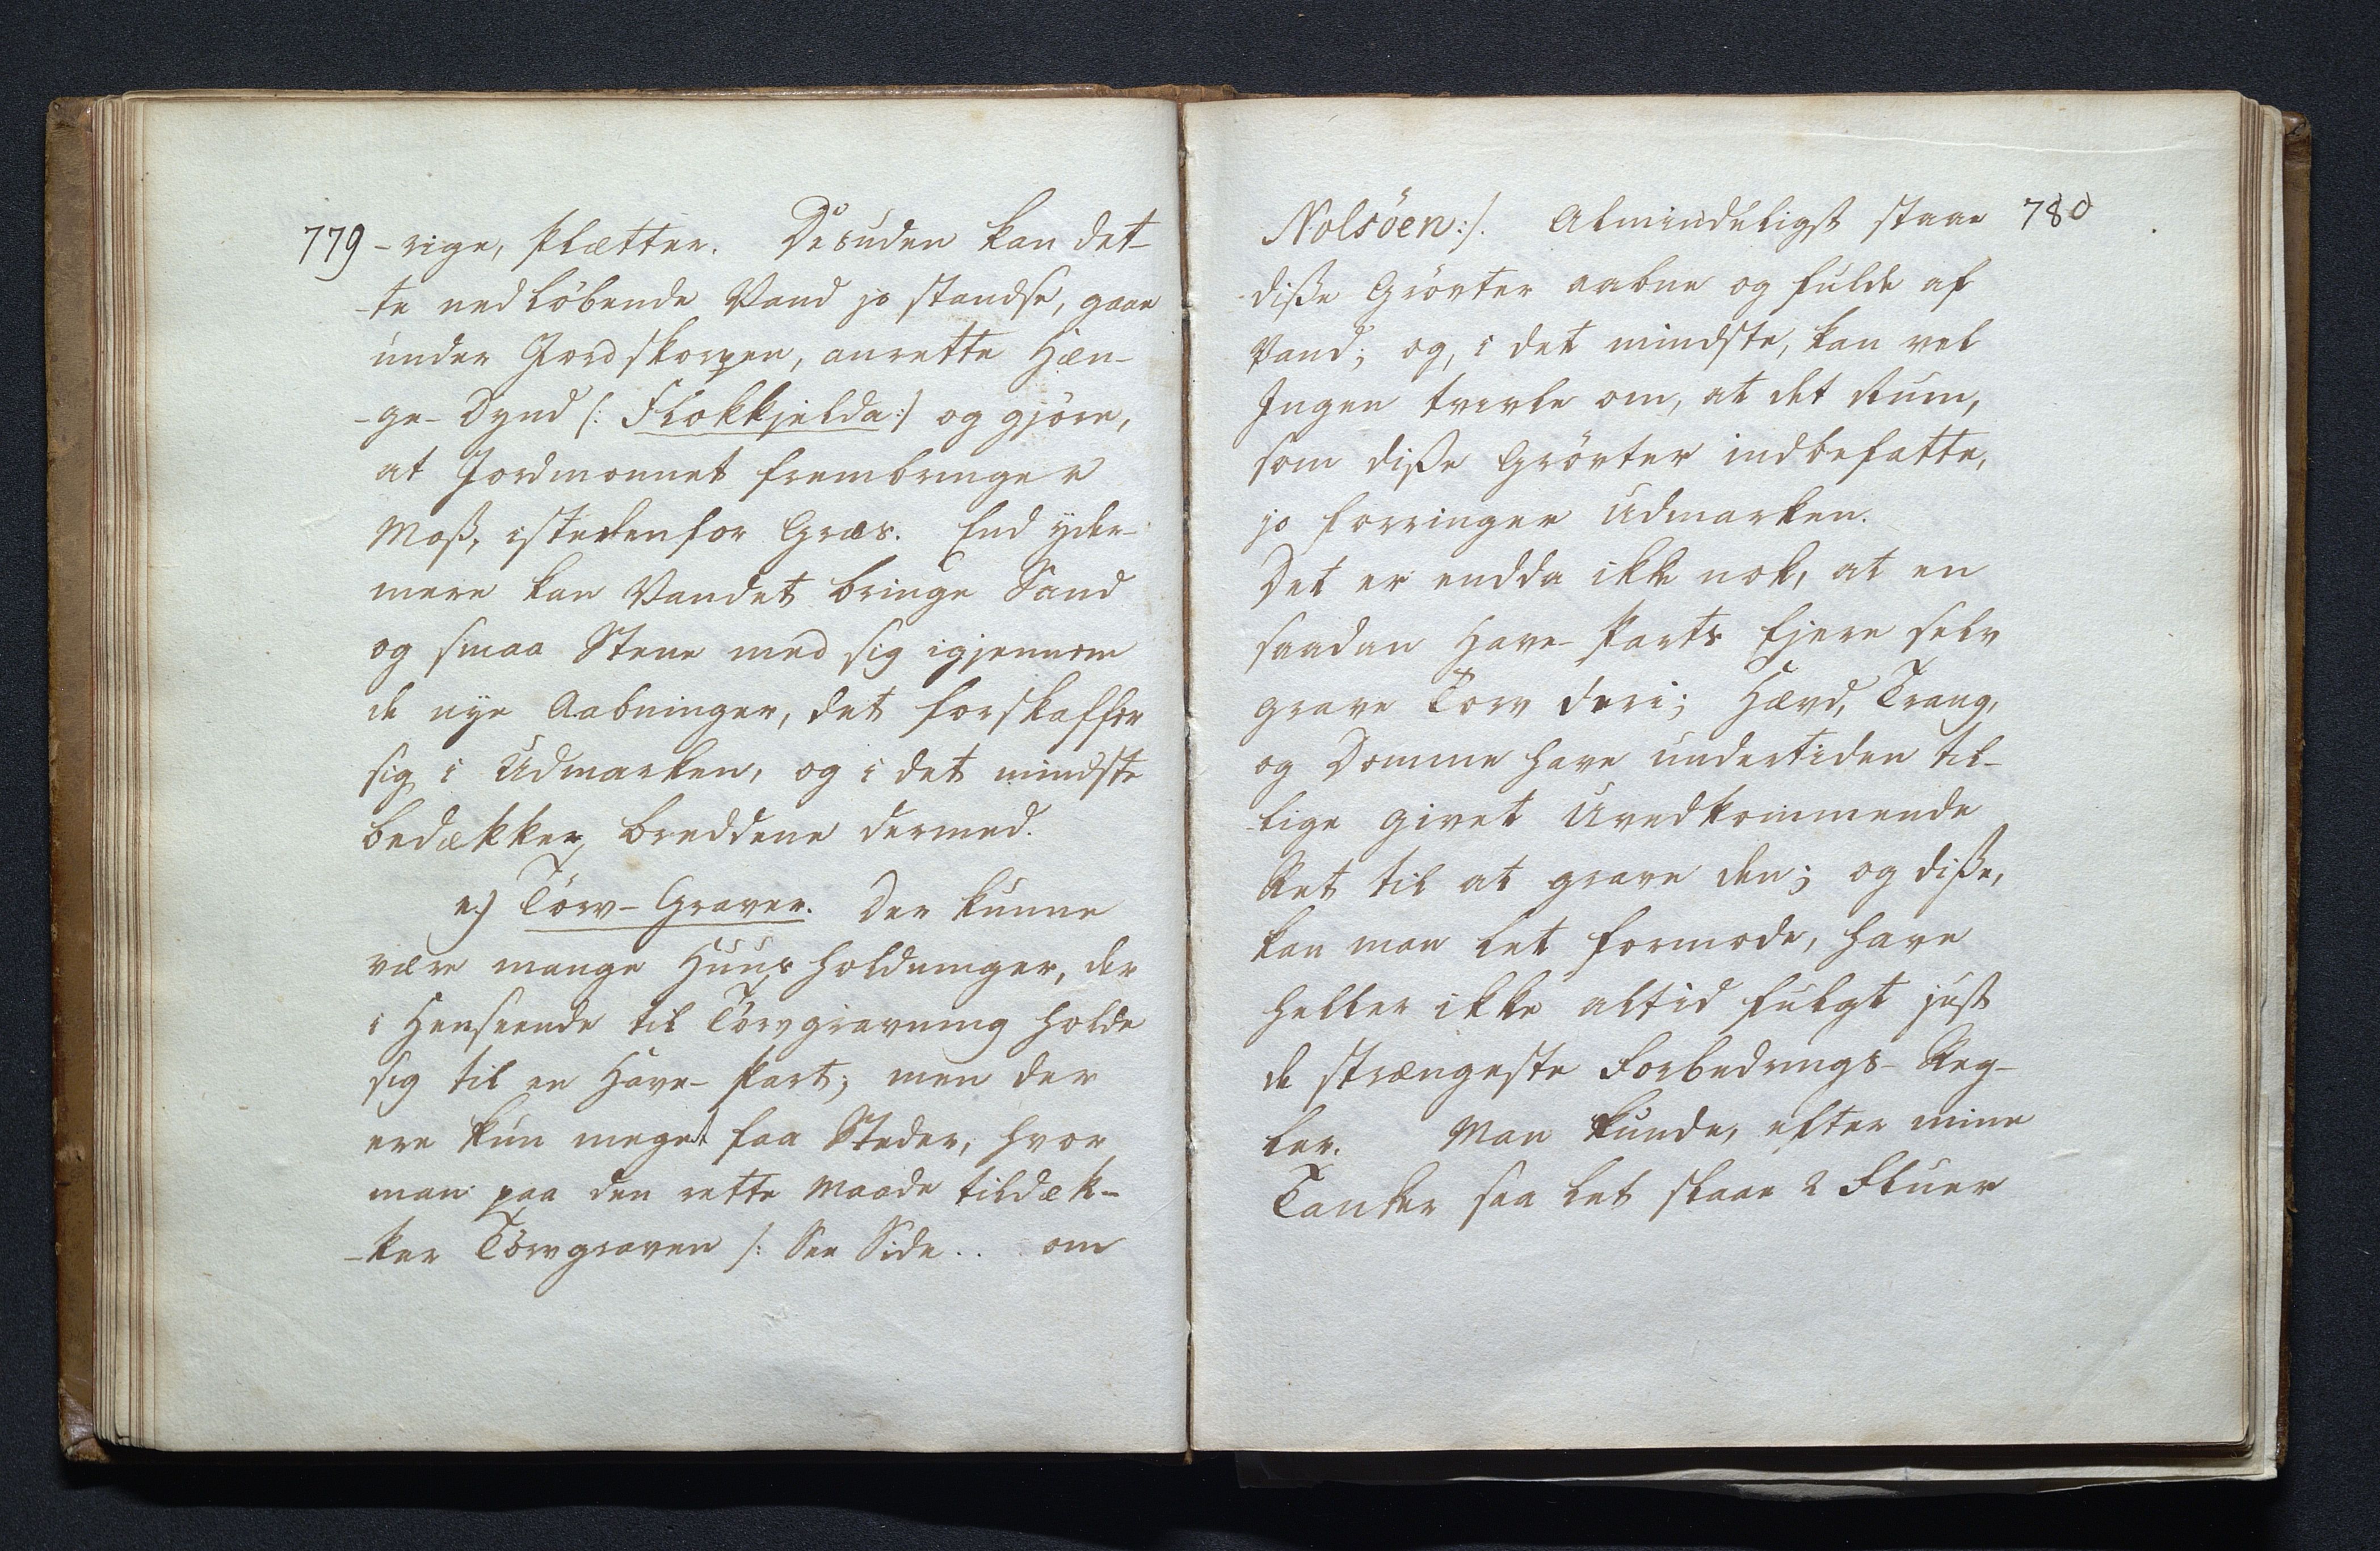 779 -rige, Pletter. Desuden kan det-
-te nedløbende Vand jo standse, gaae
under Jordskorpen, anrette Hæn-
-ge-Dynd /: Flokkjelda :/ og gjøre,
at Jordmonnet frembringer
Moß, istedenfor Græs. End yder-
mere kan Vandet bringe Sand
og smaa Stene med sig igjennem
de nye Aabninger, det forskaffer
sig i Udmarken, og i det mindste
bedækker breddene dermed.
e.) Törv-Graver. Der kunne
være mange Huusholdninger, der
i Henseende til Törvgravning holde
sig til en Have-Part; men der
ere kun meget faa Steder, hvor
man paa den rette Maade tildæk-
-ker Törvgraven /: See Side .. om
Nolsöen :/. Almindeligst staae 780
diße Grövter aabne og fulde af
Vand; og, i det mindste, kan vel
Ingen tvivle om, at det Rum,
som diße Grövter indbefatte,
jo forringer Udmarken.
Det er endda ikke nok, at en
saadan Have-Parts Ejere selv
grave Torv deri; Hævd, Trang,
og Domme have undertiden til-
-lige givet Uvedkommende
Ret til at grave den; og diße,
kan man let formode, have
heller ikke altid fulgt just
de strængeste Forbedrings-Reg-
ler. Man kunde, efter mine
Tanker saa let slaae 2 Fluer